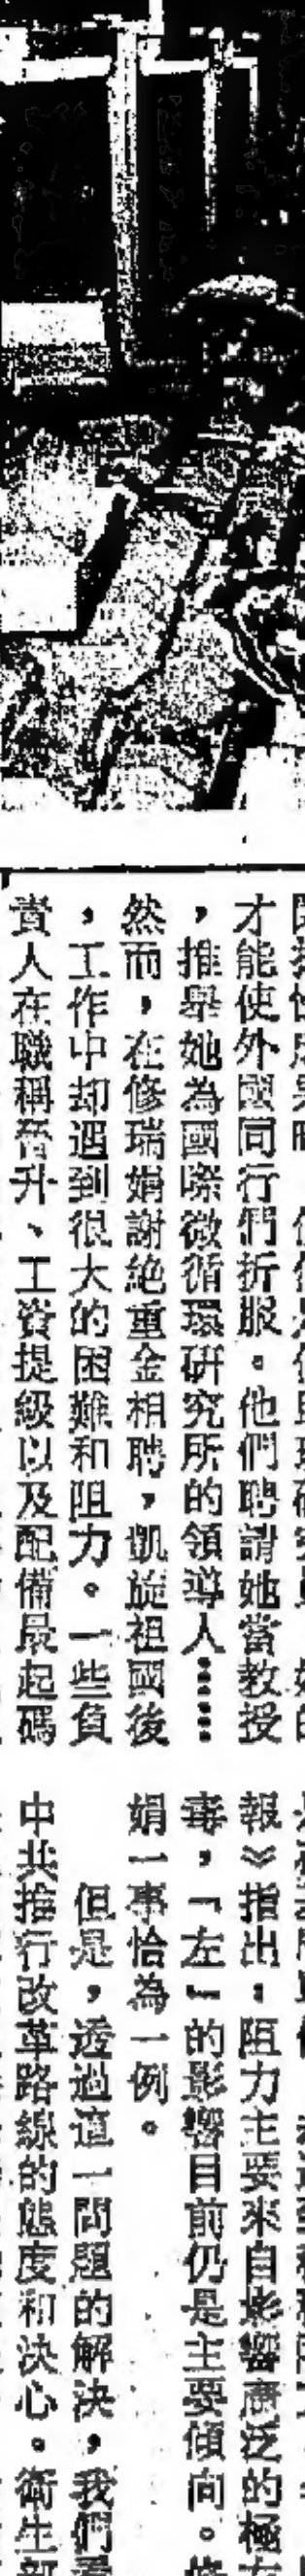 才能使外國同行們折服。他們聘請她當教授
，推舉她為國際微循環研究所的領導人……
然而，在修瑞娟謝絕重金相聘，凱旋祖國後
，工作中却遇到很大的困難和阻力。一些負
責人在職稱晉升、工資提級以及配備最起碼
報》指出：阻力主要來自影響廣泛的極左
毒，「左」的影響目前仍是主要傾向。
娟一事恰為一例。
但是，透過這一問題的解決，我們看
中共推行改革路線的態度和決心。衛生部